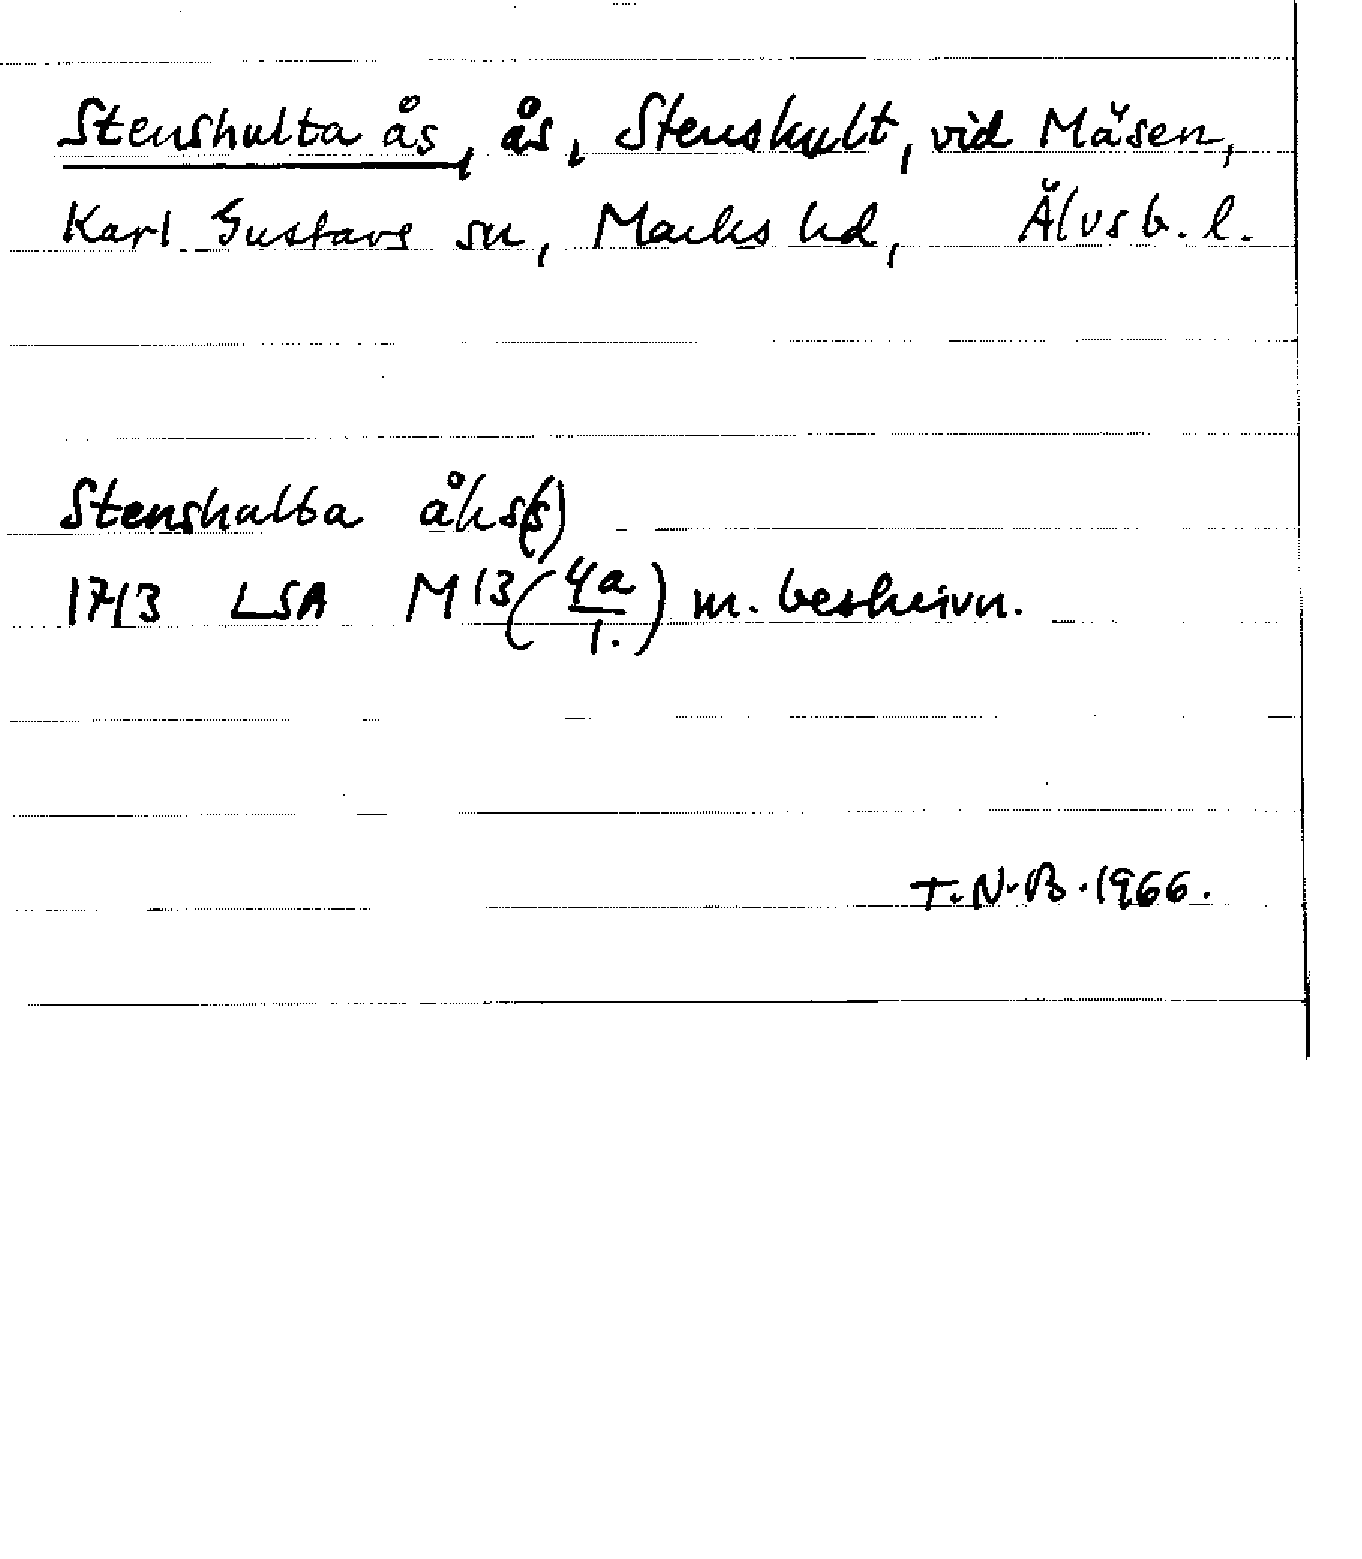 Stenshulta ås, ås, Stenskult, vid Mäsen,
Karl Gustavs sn, Marks hd, Älvsb. l.
Stenshulta åhs(s)
1713 LSA M13(4a/1.) m. beskrivn.
T.N.B.1966.